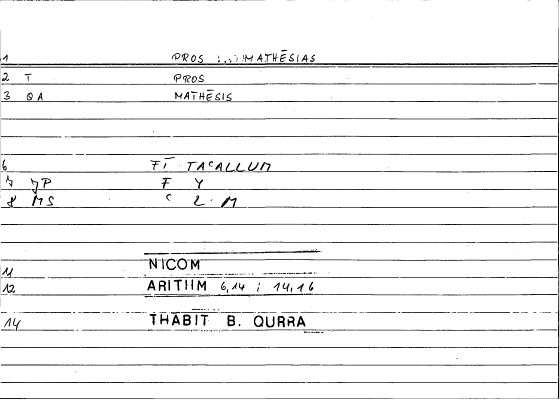 1 PROS ... MATHĒSIAS
2 T PROS
3 QA MATHĒSIS
6 FĪ TAᶜALLUM
7 JP F Y
8 MS ᶜ L . M
11 NICOM
12 ARITHM 6,14 ; 14,16
14 THĀBIT B. QURRA